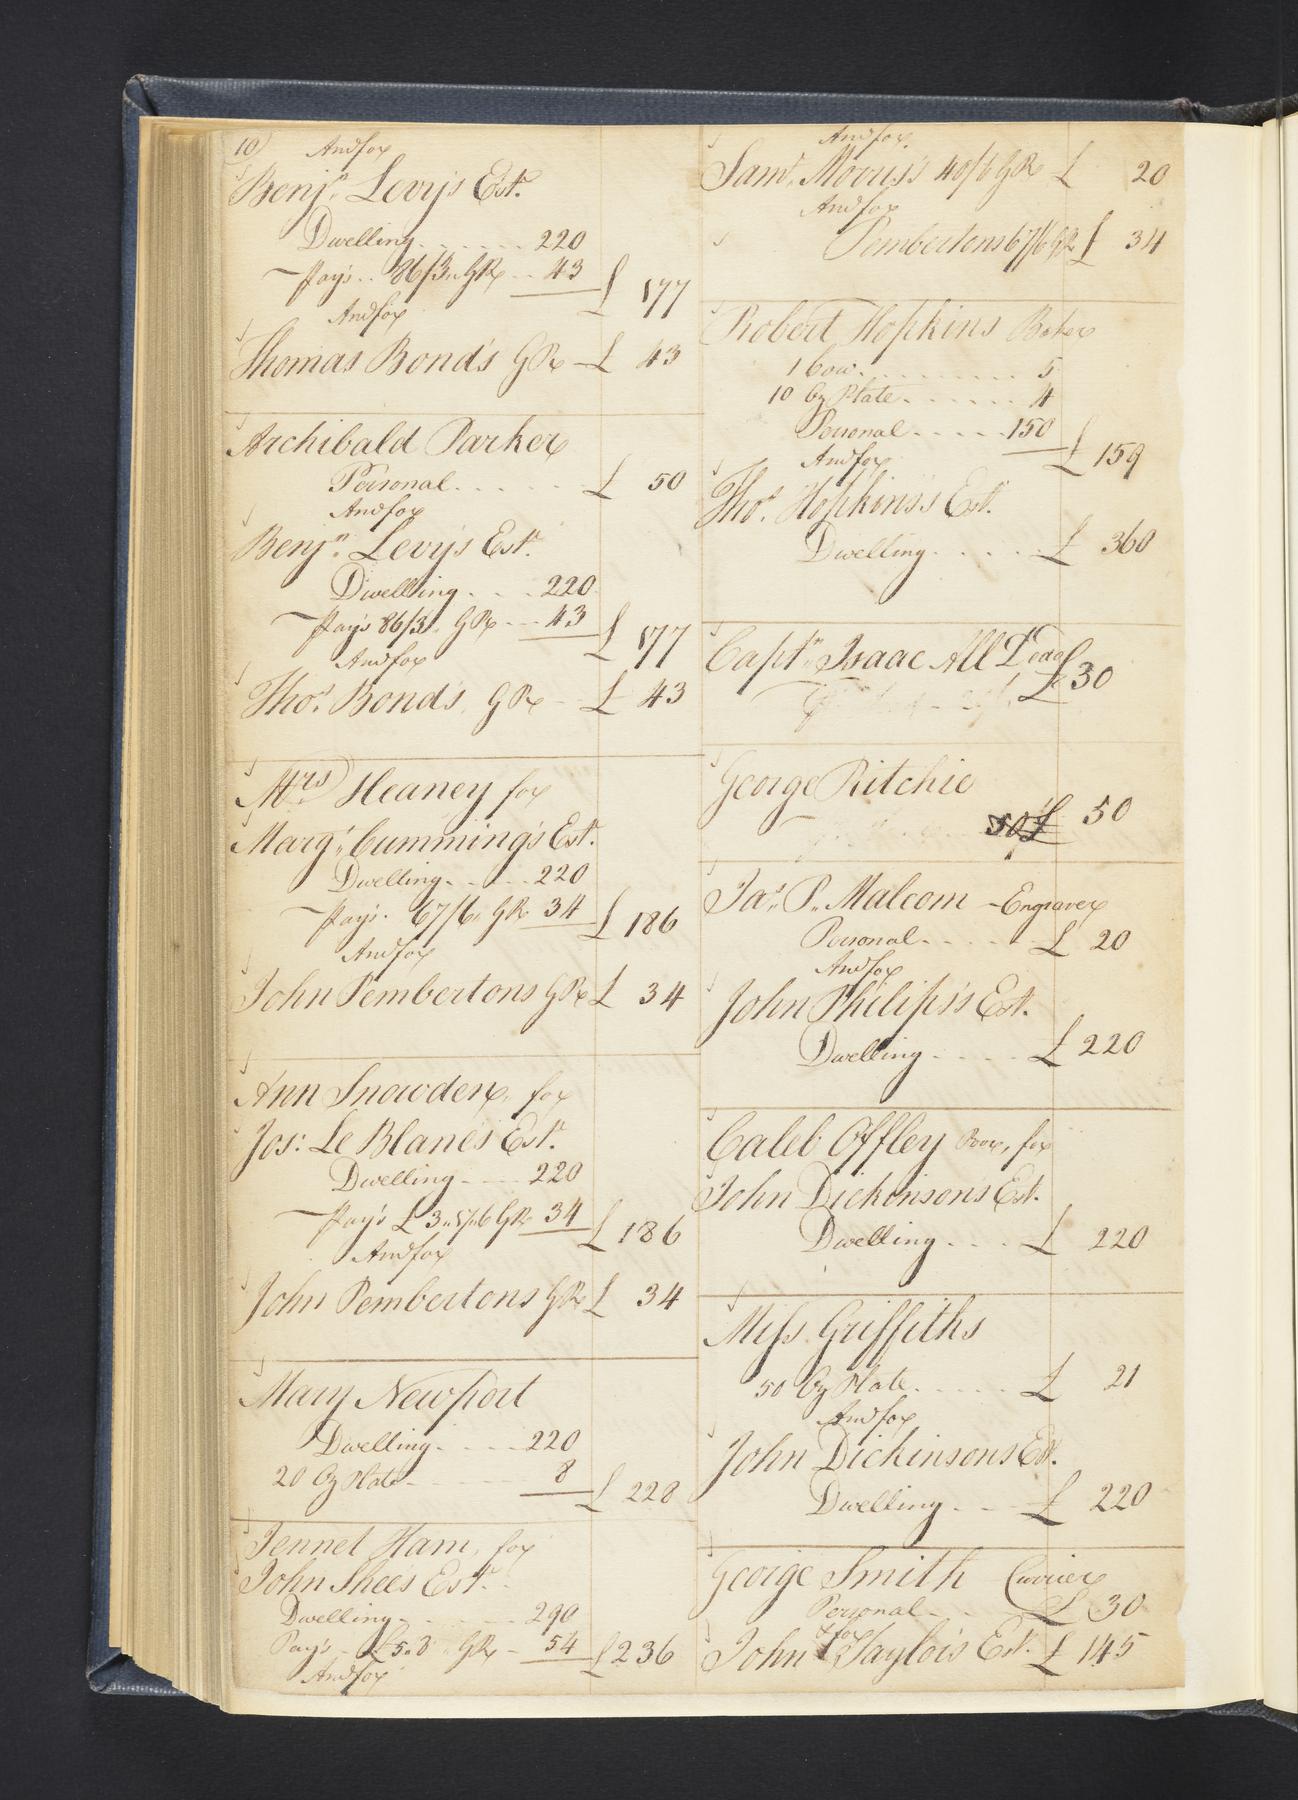 10)
And for
Benjn. Levy's Est.
Dwelling . . . . . . 220
Pay's . . 86/3 . . GR . . 43
£ 177
And for
Thomas Bond's GR - £ 43
Archibald Parker
Personal . . . . . . £ 50
And for
Benjn. Levy's Est.
Dwelling . . . 220
Pay's 86/3 . GR - - 43
£ 177
And for
Thos. Bond's GR - £ 43
Mrs. Heaney for
Margt. Cumming's Est.
Dwelling . . . . 220
Pay's . 67/6 . . GR 34 £ 186
And for
John Pembertons GR £ 34
Ann Snowden, for
Jos: Le Blanc's Est.
Dwelling - - - 220
Pay's £ 3 . . 7/6 GR 34 £ 186
And for
John Pembertons GR £ 34
Mary Newport
Dwelling . . . . 220
20 Oz Plate - - - 8
£ 228
Jennet Ham, for
John Shee's Est.
Dwelling - - - - 290
Pay's - £5 . 8 . GR - 54 £ 236
And for
And for
Saml. Morris's 40/6 GR £ 20
And for
Pembertons 67/6 GR £ 34
Robert Hopkins Baker
1 Cow . . . . . . . . 5
10 Oz Plate . . . . . . 4
Personal . . . . . 150
£ 159
And for
Thos. Hopkins's Est.
Dwelling . . . . . £ 360
Captn. Isaac All
£ 30
George Ritchie
50 £ 50
Jas. P. Malcom - Engraver
Personal . . . . . £ 20
And for
John Philips's Est.
Dwelling . . . . . £ 220
Caleb Offley Poor, for
John Dickinson's Est.
Dwelling . . . . £ 220
Miss Griffiths
50 Oz Plate . . . . . £ 21
And for
John Dickinsons Est.
Dwelling . . . £ 220
George Smith Currier
Personal - - £ 30
& for
John Taylor's Est. £ 145